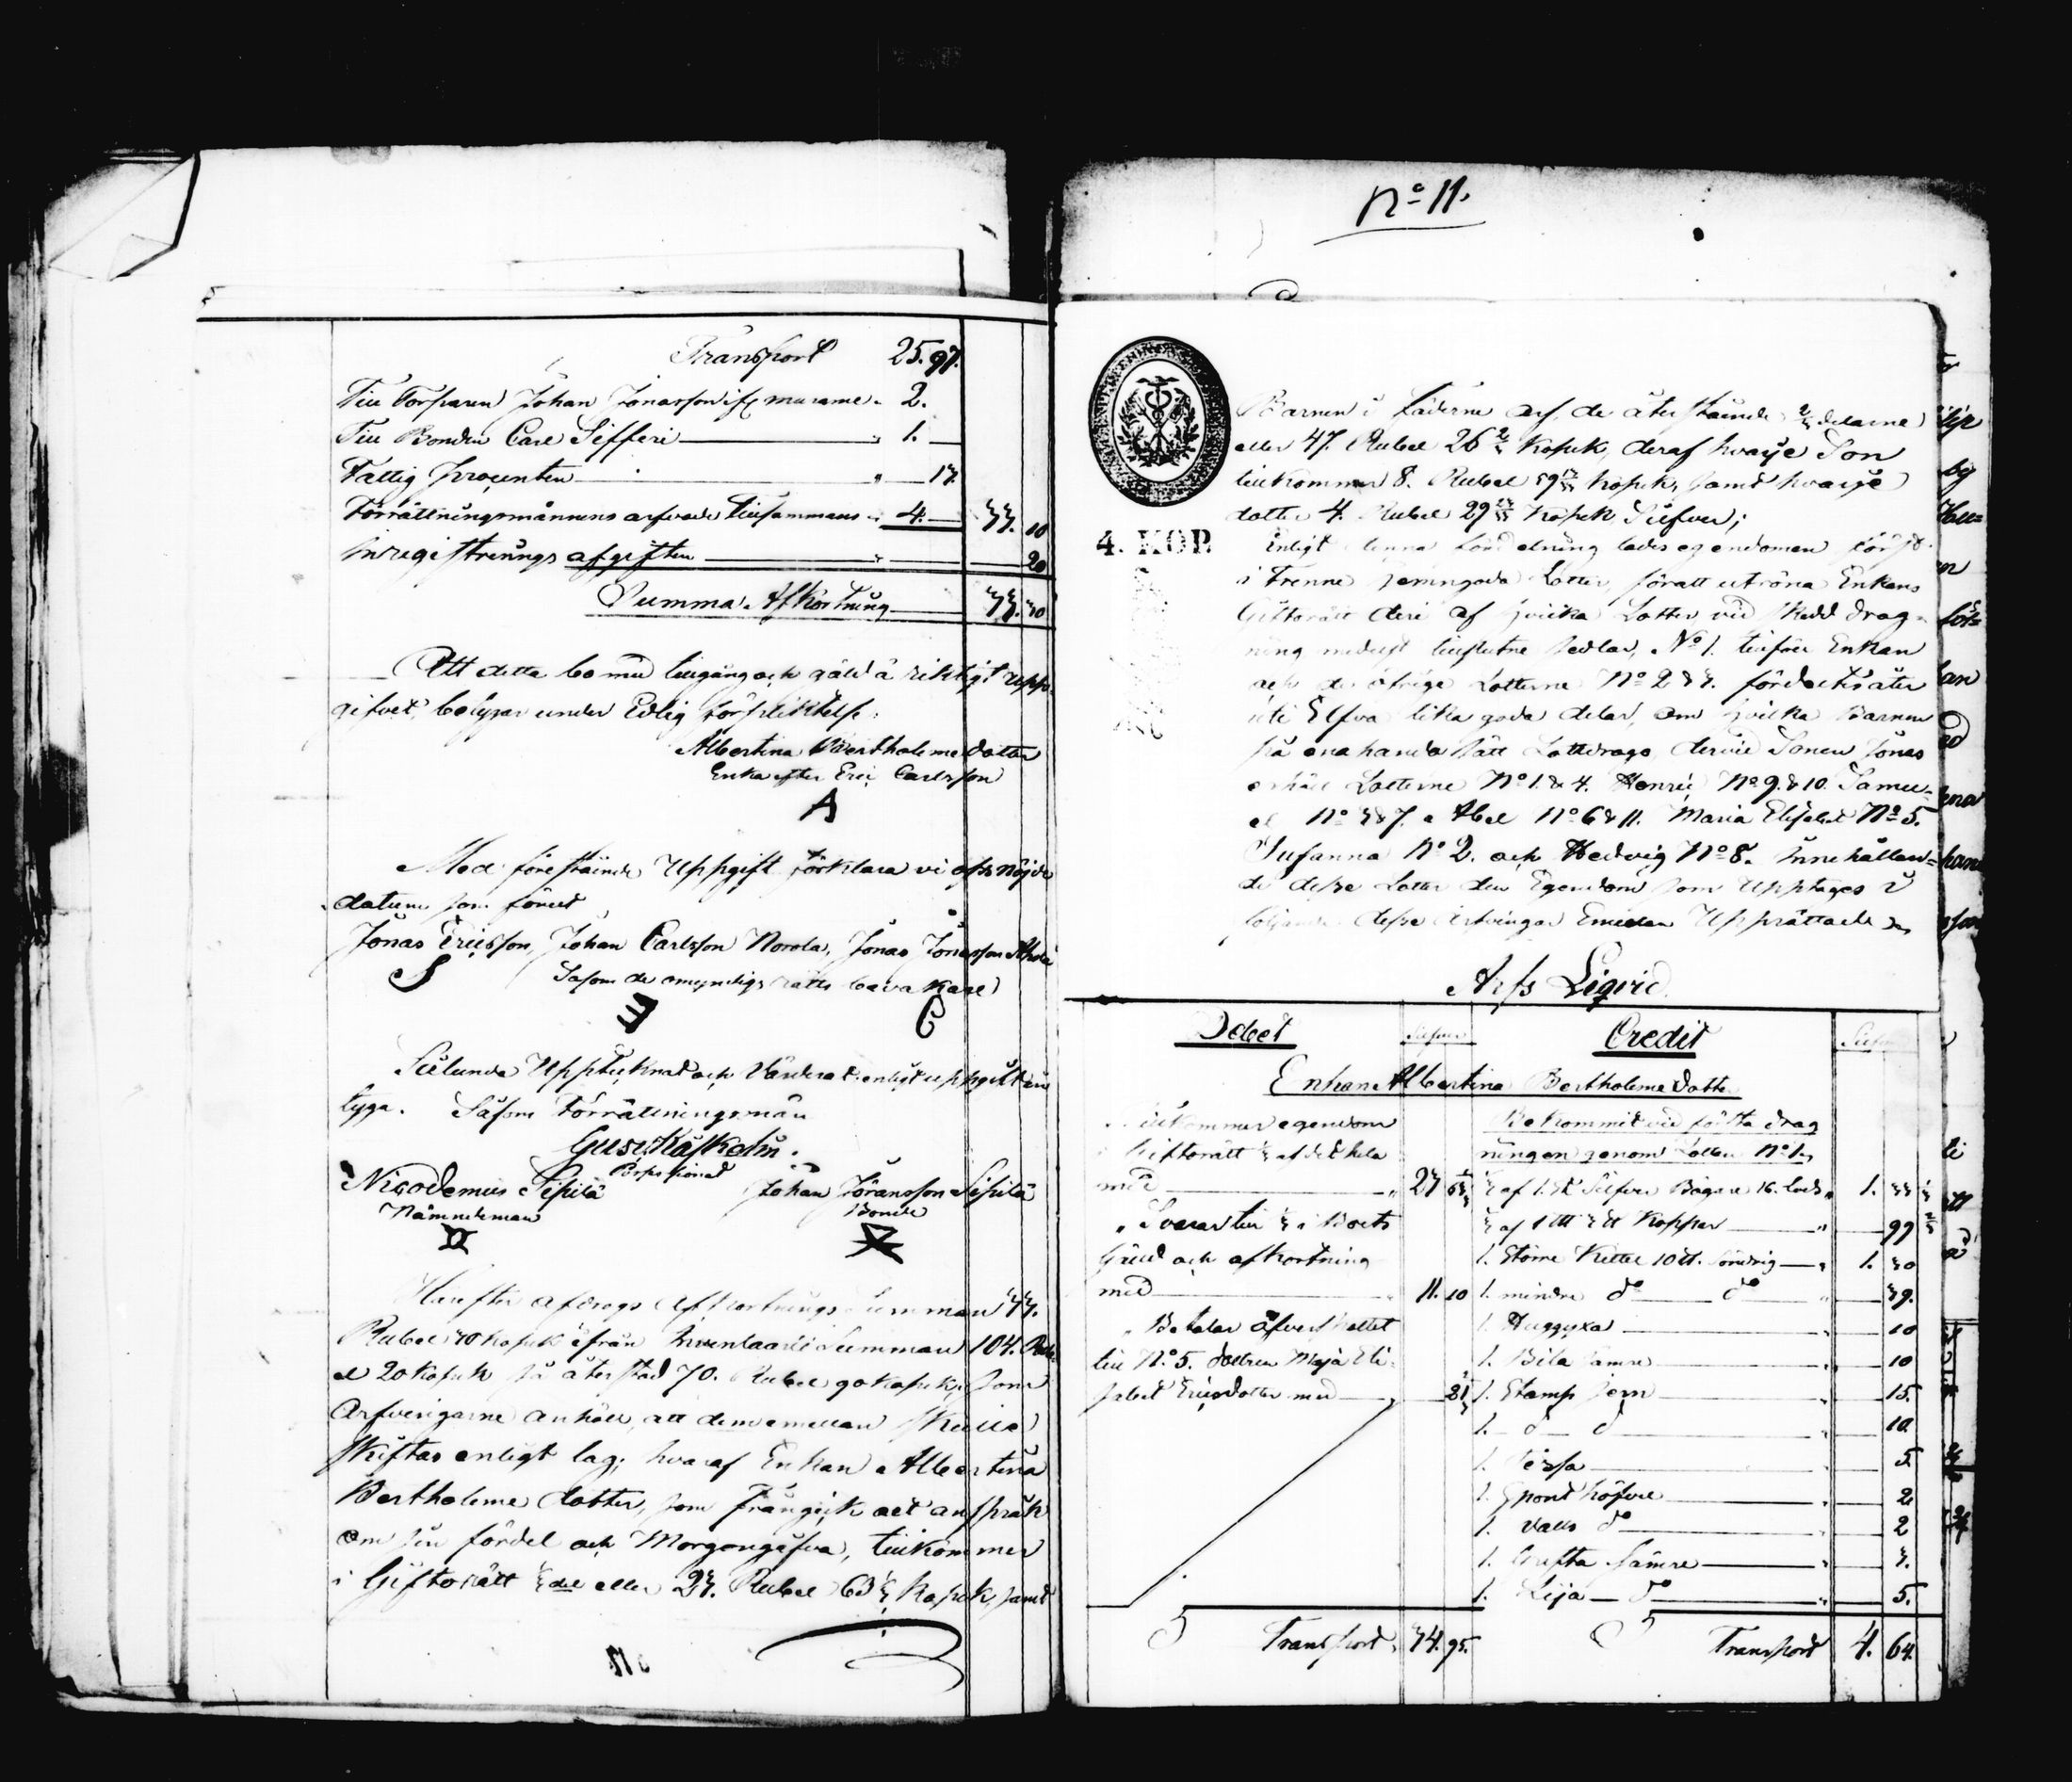 Transport 25.97.
Till Torparen Johan Jonasson murame " 2.
Till Bonden Carl Sifferi " 1.
Fattig procenten " 13.
Förrättningsmännens arfvode tillsammans " 4. 33. 10
Inregistrerings afgiften " 20
Summa Afkortning 33. 30
Att detta bo med tillgång och gäld ä riktigt upp-
gifvet, betygar under Edlig förpliktelse.
Albertina Bertholemedotter
Enka efter Eric Carlsson
A
Med förestående Uppgift förklara vi oss nöjde
datum som förut
Jonas Ericsson, Johan Carlsson Norola, Jonas Jonasson
Såsom de omyndigs rätts bevakare
Sålunda Upptecknat och Värderat enligt uppgift
tyga. Såsom Förrättningsmän
Gust. Käskelin.
Nicodemus Sipilä Johan Göransson Sipilä
Nämndeman Bonde
Härefter afdrogs Afkortnings Summan 33.
Rubel 30 kopek ifrån Inventarii Summan 104. Rub-
el 20 kopek så återstod 70. Rubel 90 kopek, som
Arfvingarne anhöll att dem emellan skulle
skiftas enligt lag; hvaraf Enkan Albertina
Bertholeme dotter, som frångick all anspråk
om sin fördel och Morgongåfva, tillkommer
i Giftorätt 1/3 del eller 23. Rubel 63 1/3 kopek, samt
No 11.
4. KOP.
Barnen i Fäderne arf de återstående 2/3 delarne
eller 47. Rubel 26 2/3 kopek, deraf hvarje Son
tillkommer 8. Rubel 59 kopek, samt hvarje
dotter 4. Rubel 29 kopek Silfver;
Enligt denna fördelning lades egendomen först
i Trenne jemngoda Lotter, för att utröna Enkans
Giftorätt deri af hvilka Lotter vid skedd drag-
ning medelst tillslutne sedlar, No 1. tillföll Enkan
och de öfrige Lotterne No 2 & 3. fördeltes åter
uti Elfva lika goda delar, om hvilka Barnen
på ena handa sätt Lottdrogo, dervid Sonen Jonas
erhöll Lotterne No 1. & 4. Henric No 9. & 10. Samu-
el No 3 & 7. Abel No 6 & 11. Maria Elisabet No 5.
Susanna No 2. och Hedvig No 8. Innehållan-
de desse Lotter den Egendom som upptages i
följande desse Arfvingar Emellan Upprättade
Arfs Liqvid.
Debet Silfver Credit Silfver
Enkan Albertina Bertholeme Dotter
Tillkommer egendom
i Giftorätt 1/3 af det hela
med " 23 63 1/3
" Svarar till 1/3 i Boets
Gäld och afkortning
med " 11. 10
" Betalar öfverskottet
till No 5. dottren Maja Eli-
sabet Ericsdotter med 21
Bekommit vid första drag
ningen genom Lotten No 1.
1/3 af 1. st Silfver Bägare 16. lod " 1. 33 1/3
1/3 af Koppar " 99 2/3
1. Större Kittel 10 tt. söndrig " 1. 30
1. mindre do do " 39.
1. Huggyxa " 10
1. Bila sämre 10
1. Stamp jern " 15.
1. d d " 10.
1. Tersa " 5
1. Spont höfvel " 2
1. Valls do " 2
1. Grefta sämre " 3.
1. Lija do " 5.
Transport. 34. 95. Transport 4. 64.